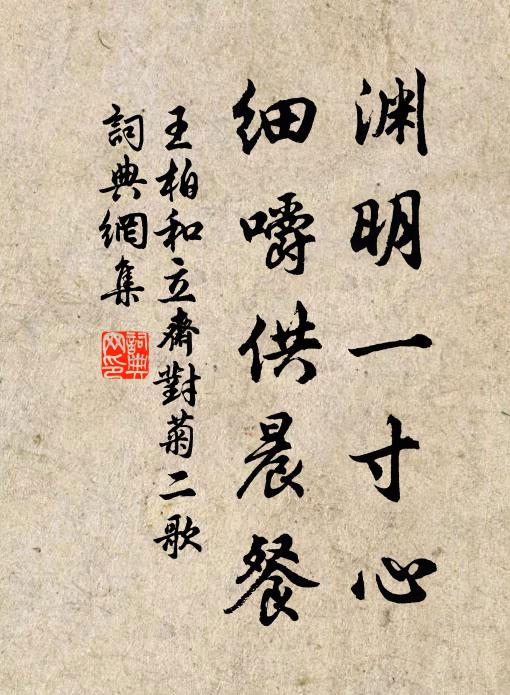 渊明一寸心
细嚼供晨餐
王柏和立齋對菊二歌
詞典網集
詞典网印